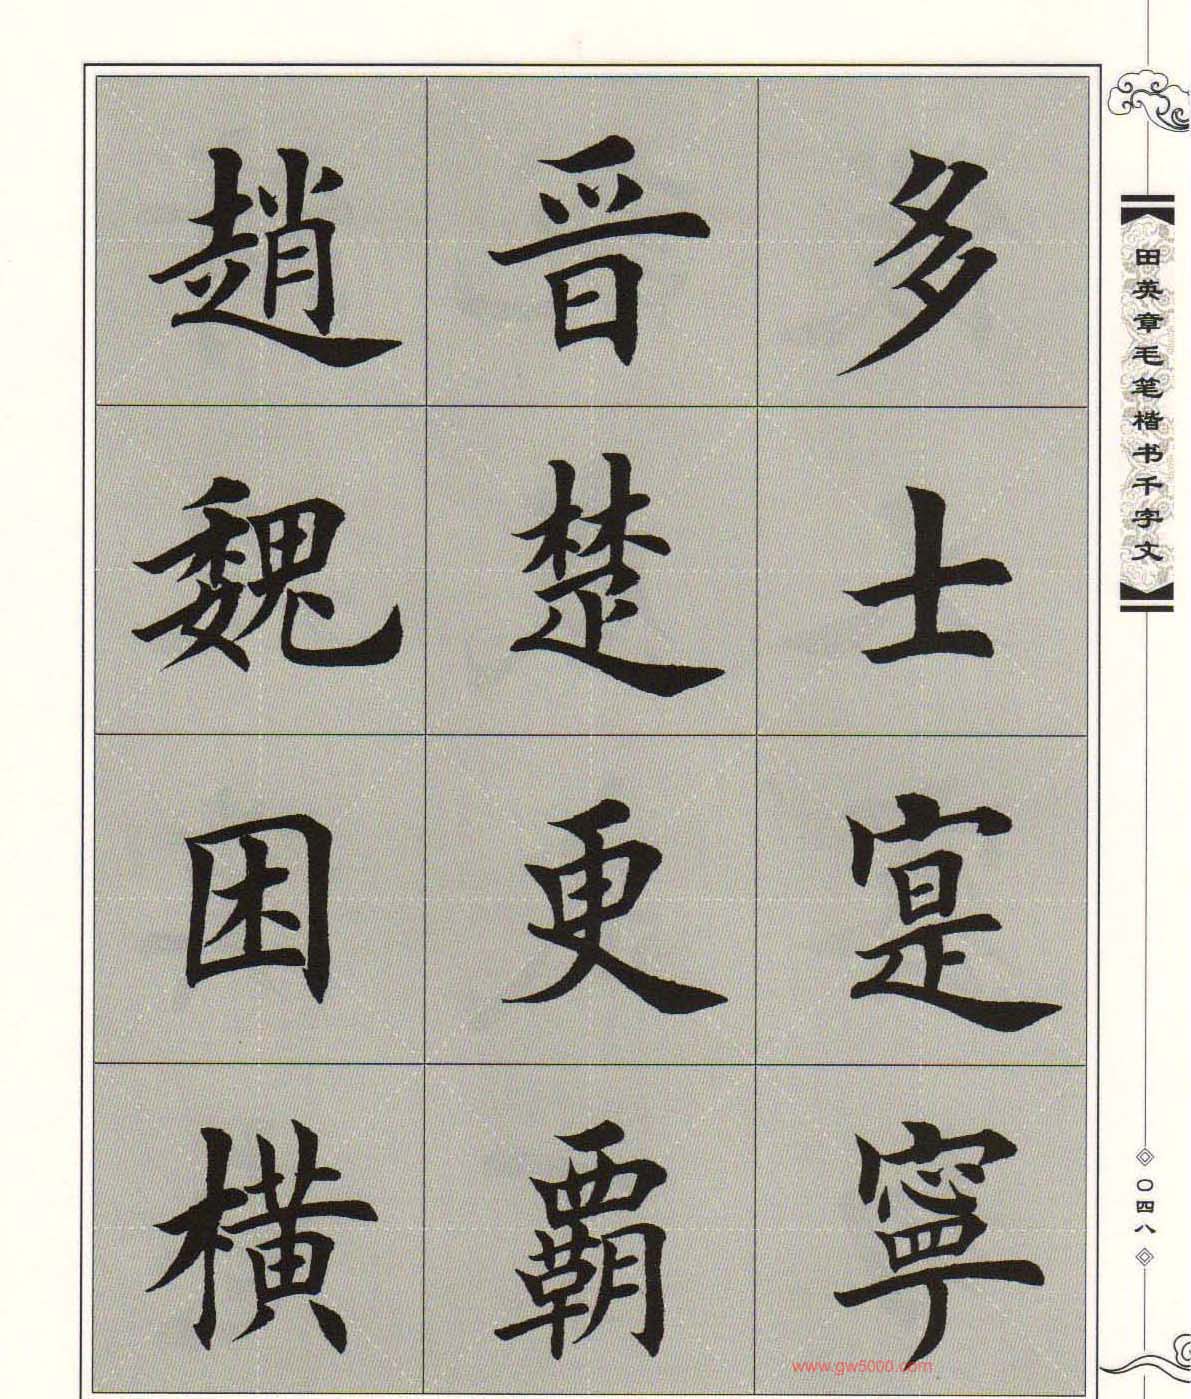 多士寔寧
晋楚更覇
趙魏困横
田英章毛笔楷书千字文
〇四八
www.gw5000.com